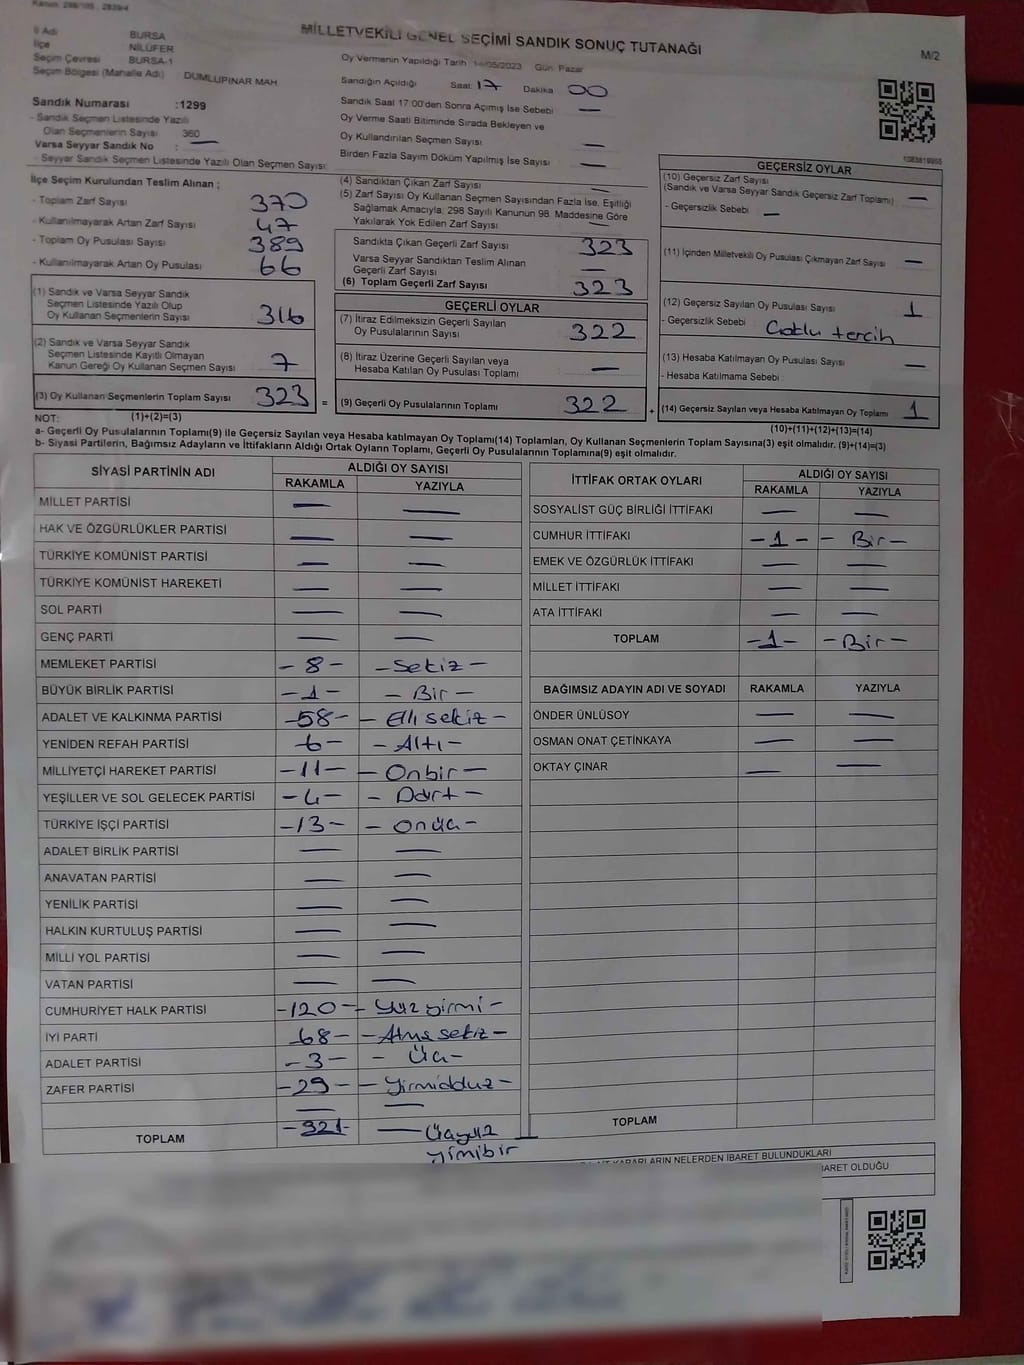 MİLLETVEKİLİ GENEL SEÇİMİ SANDIK SONUÇ TUTANAĞI
M/2
İl Adı BURSA
İlçe NİLÜFER
Seçim Çevresi BURSA-1
Seçim Bölgesi (Mahalle Adı) DUMLUPINAR MAH
Sandık Numarası :1299
- Sandık Seçmen Listesinde Yazılı
Olan Seçmenlerin Sayısı 360
Varsa Seyyar Sandık No : —
- Seyyar Sandık Seçmen Listesinde Yazılı Olan Seçmen Sayısı:
Oy Vermenin Yapıldığı Tarih 14/05/2023 Gün: Pazar
Sandığın Açıldığı Saat: 17 Dakika 00
Sandık Saat 17:00'den Sonra Açımış İse Sebebi —
Oy Verme Saati Bitiminde Sırada Bekleyen ve
Oy Kullandırılan Seçmen Sayısı —
Birden Fazla Sayım Döküm Yapılmış İse Sayısı —
İlçe Seçim Kurulundan Teslim Alınan ;
- Toplam Zarf Sayısı 370
- Kullanılmayarak Artan Zarf Sayısı 47
- Toplam Oy Pusulası Sayısı 389
- Kullanılmayarak Artan Oy Pusulası 66
(1) Sandık ve Varsa Seyyar Sandık
Seçmen Listesinde Yazılı Olup
Oy Kullanan Seçmenlerin Sayısı 316
(2) Sandık ve Varsa Seyyar Sandık
Seçmen Listesinde Kayıtlı Olmayan
Kanun Gereği Oy Kullanan Seçmen Sayısı 7
(3) Oy Kullanan Seçmenlerin Toplam Sayısı 323 =
(1)+(2)=(3)
(4) Sandıktan Çıkan Zarf Sayısı —
(5) Zarf Sayısı Oy Kullanan Seçmen Sayısından Fazla İse, Eşitliği
Sağlamak Amacıyla; 298 Sayılı Kanunun 98. Maddesine Göre
Yakılarak Yok Edilen Zarf Sayısı —
Sandıkta Çıkan Geçerli Zarf Sayısı 323
Varsa Seyyar Sandıktan Teslim Alınan
Geçerli Zarf Sayısı —
(6) Toplam Geçerli Zarf Sayısı 323
GEÇERLİ OYLAR
(7) İtiraz Edilmeksizin Geçerli Sayılan
Oy Pusulalarının Sayısı 322
(8) İtiraz Üzerine Geçerli Sayılan veya
Hesaba Katılan Oy Pusulası Toplamı —
(9) Geçerli Oy Pusulalarının Toplamı 322 +
1083819955
GEÇERSİZ OYLAR
(10) Geçersiz Zarf Sayısı
(Sandık ve Varsa Seyyar Sandık Geçersiz Zarf Toplamı) —
- Geçersizlik Sebebi —
(11) İçinden Milletvekili Oy Pusulası Çıkmayan Zarf Sayısı —
(12) Geçersiz Sayılan Oy Pusulası Sayısı 1
- Geçersizlik Sebebi Çoklu tercih
(13) Hesaba Katılmayan Oy Pusulası Sayısı —
- Hesaba Katılmama Sebebi
(14) Geçersiz Sayılan veya Hesaba Katılmayan Oy Toplamı 1
(10)+(11)+(12)+(13)=(14)
NOT:
a- Geçerli Oy Pusulalarının Toplamı(9) ile Geçersiz Sayılan veya Hesaba katılmayan Oy Toplamı(14) Toplamları, Oy Kullanan Seçmenlerin Toplam Sayısına(3) eşit olmalıdır. (9)+(14)=(3)
b- Siyasi Partilerin, Bağımsız Adayların ve İttifakların Aldığı Ortak Oyların Toplamı, Geçerli Oy Pusulalarının Toplamına(9) eşit olmalıdır.
SİYASİ PARTİNİN ADI ALDIĞI OY SAYISI
RAKAMLA YAZIYLA
MİLLET PARTİSİ — —
HAK VE ÖZGÜRLÜKLER PARTİSİ — —
TÜRKİYE KOMÜNİST PARTİSİ — —
TÜRKİYE KOMÜNİST HAREKETİ — —
SOL PARTİ — —
GENÇ PARTİ — —
MEMLEKET PARTİSİ -8- -Sekiz-
BÜYÜK BİRLİK PARTİSİ -1- -Bir-
ADALET VE KALKINMA PARTİSİ -58- -Elli sekiz-
YENİDEN REFAH PARTİSİ -6- -Altı-
MİLLİYETÇİ HAREKET PARTİSİ -11- -Onbir-
YEŞİLLER VE SOL GELECEK PARTİSİ -4- -Dört-
TÜRKİYE İŞÇİ PARTİSİ -13- -Onüç-
ADALET BİRLİK PARTİSİ — —
ANAVATAN PARTİSİ — —
YENİLİK PARTİSİ — —
HALKIN KURTULUŞ PARTİSİ — —
MİLLİ YOL PARTİSİ — —
VATAN PARTİSİ — —
CUMHURİYET HALK PARTİSİ -120- -Yüz yirmi-
İYİ PARTİ 68- -Atmış sekiz-
ADALET PARTİSİ -3- -Üç-
ZAFER PARTİSİ -29- -Yirmidokuz-
— —
TOPLAM -321- —Üçyüz
yirmibir
İTTİFAK ORTAK OYLARI ALDIĞI OY SAYISI
RAKAMLA YAZIYLA
SOSYALİST GÜÇ BİRLİĞİ İTTİFAKI — —
CUMHUR İTTİFAKI -1- -Bir-
EMEK VE ÖZGÜRLÜK İTTİFAKI — —
MİLLET İTTİFAKI — —
ATA İTTİFAKI — —
TOPLAM -1- -Bir-
BAĞIMSIZ ADAYIN ADI VE SOYADI RAKAMLA YAZIYLA
ÖNDER ÜNLÜSOY — —
OSMAN ONAT ÇETİNKAYA — —
OKTAY ÇINAR — —
TOPLAM
KARARLARIN NELERDEN İBARET BULUNDUKLARI
İBARET OLDUĞU